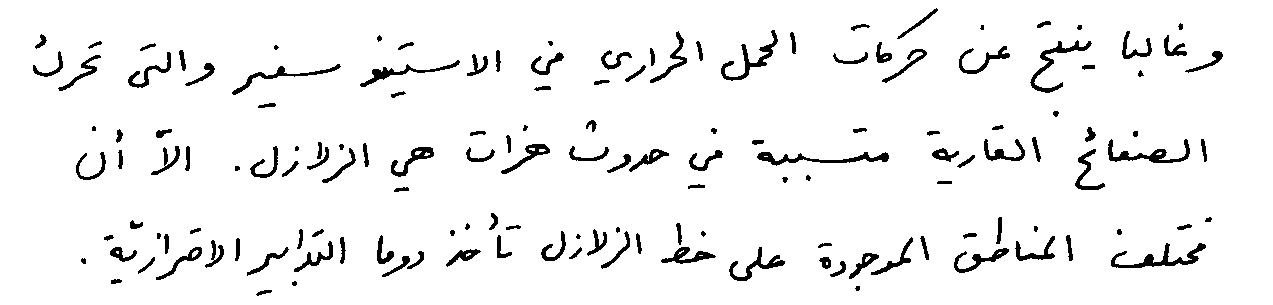 وغالبا ينتج عن حركات الحمل الحراري في الاستينو سفير والتي تحرك
الصفائح القارية متسببة في حدوث هزات هي الزلازل. الاّ أن
مختلف المناطق الموجودة على خط الزلازل تأخذ دوما التدابير الاحترازيّة.